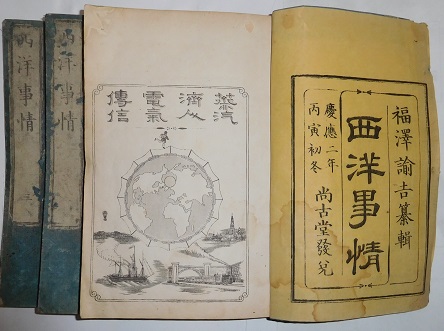 福澤諭吉纂輯
西洋事情
慶應二年
丙寅初冬
尚古堂發兌
蒸汽
濟人
電氣
傳信
西洋事情
西洋事情 三